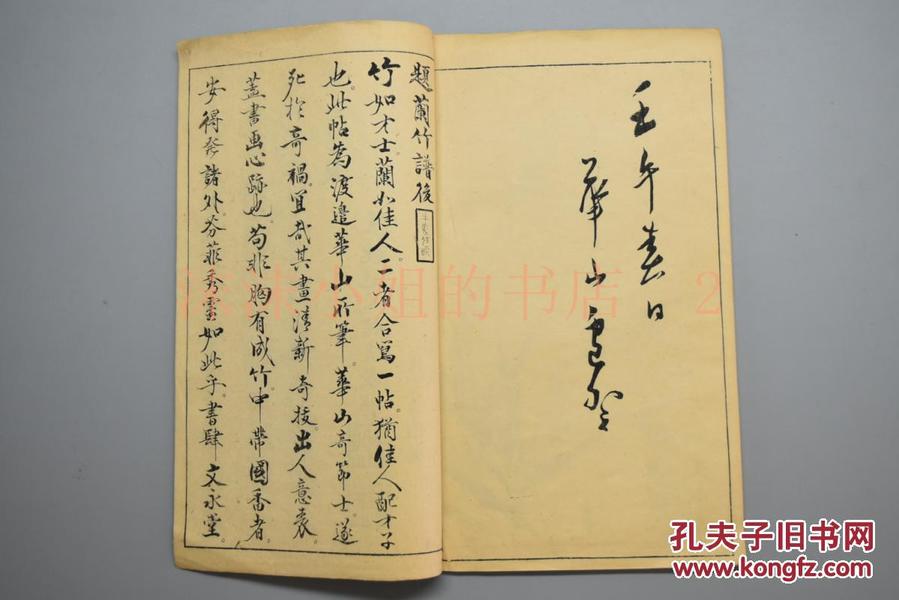 壬午春日
華山
題蘭竹譜後
竹如才士蘭如佳人二者合寫一帖猶佳人配才子
也此帖為渡邉華山所筆華山奇節士遂
死於奇禍宜哉其畫清新奇拔出人意表
蓋書画心跡也苟非胸有成竹中帶國香者
安得發諸外芬菲秀靈如此乎書肆文永堂
沫沫小姐的书店 2
孔夫子旧书网
www.kongfz.com